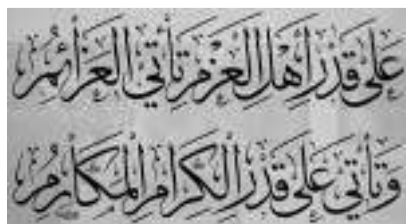 عَلَى قَدْرِ أَهْلِ الْعَزْمِ تَأْتِي الْعَزَائِمُ
وَتَأْتِي عَلَى قَدْرِ الْكِرَامِ الْمَكَارِمُ